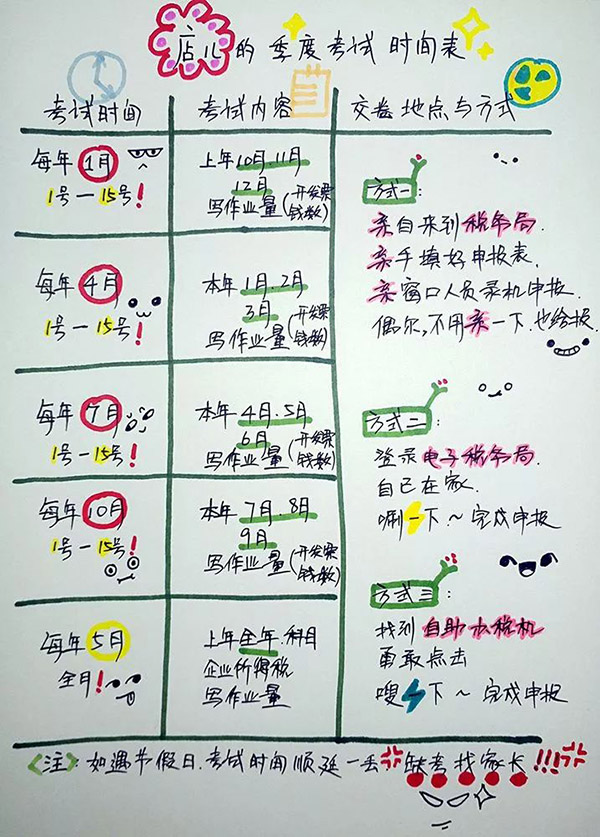 店儿的季度考试时间表
考试时间
考试内容
交卷地点与方式
每年1月
1号一15号!
上年10月.11月
12月
写作业量(开发票
钱数)
每年4月
1号一15号!
本年1月.2月
3月
写作业量(开发票
钱数)
每年7月
1号一15号!
本年4月.5月
6月
写作业量(开发票
钱数)
每年10月
1号一15号!
本年7月.8月
9月
写作业量(开发票
钱数)
每年5月
全月!
上年全年.科目
企业所得税
写作业量
方式一:
亲自来到税务局.
亲手填好申报表.
亲窗口人员录机申报.
偶尔,不用亲一下.也给报.
方式二:
登录电子税务局.
自己在家.
唰一下~完成申报
方式三:
找到自助办税机
勇敢点击
嗖一下~完成申报
<注>:如遇节假日.考试时间顺延一丢.缺考找家长!!!